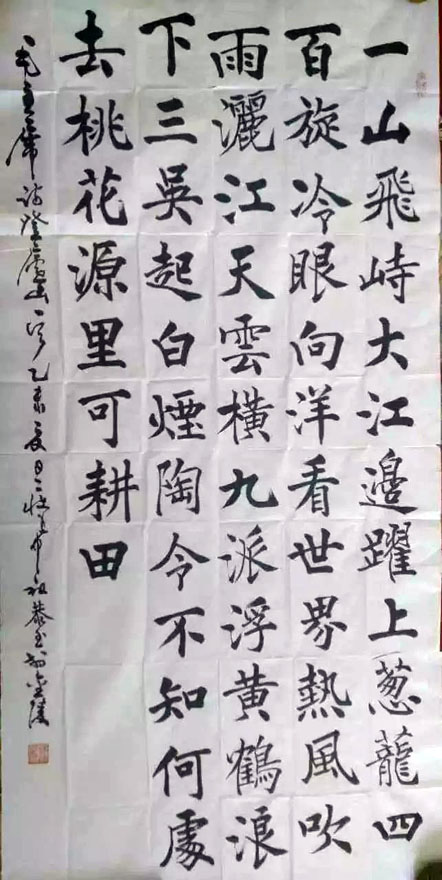 一山飛峙大江邊躍上葱蘢四
百旋冷眼向洋看世界熱風吹
雨灑江天雲橫九派浮黄鶴浪
下三吳起白煙陶令不知何處
去桃花源里可耕田
毛主席詩登廬山一首乙未夏日書於金陵